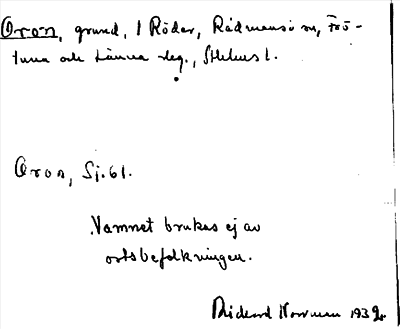 Oron, grund, 1 Röder, Rådmansö sn, Frö-
tuna och Länna skg., Sthlms l.
Oron, Sj. 61.
Namnet brukas ej av
ortsbefolkningen.
Rickard Norman 1932.